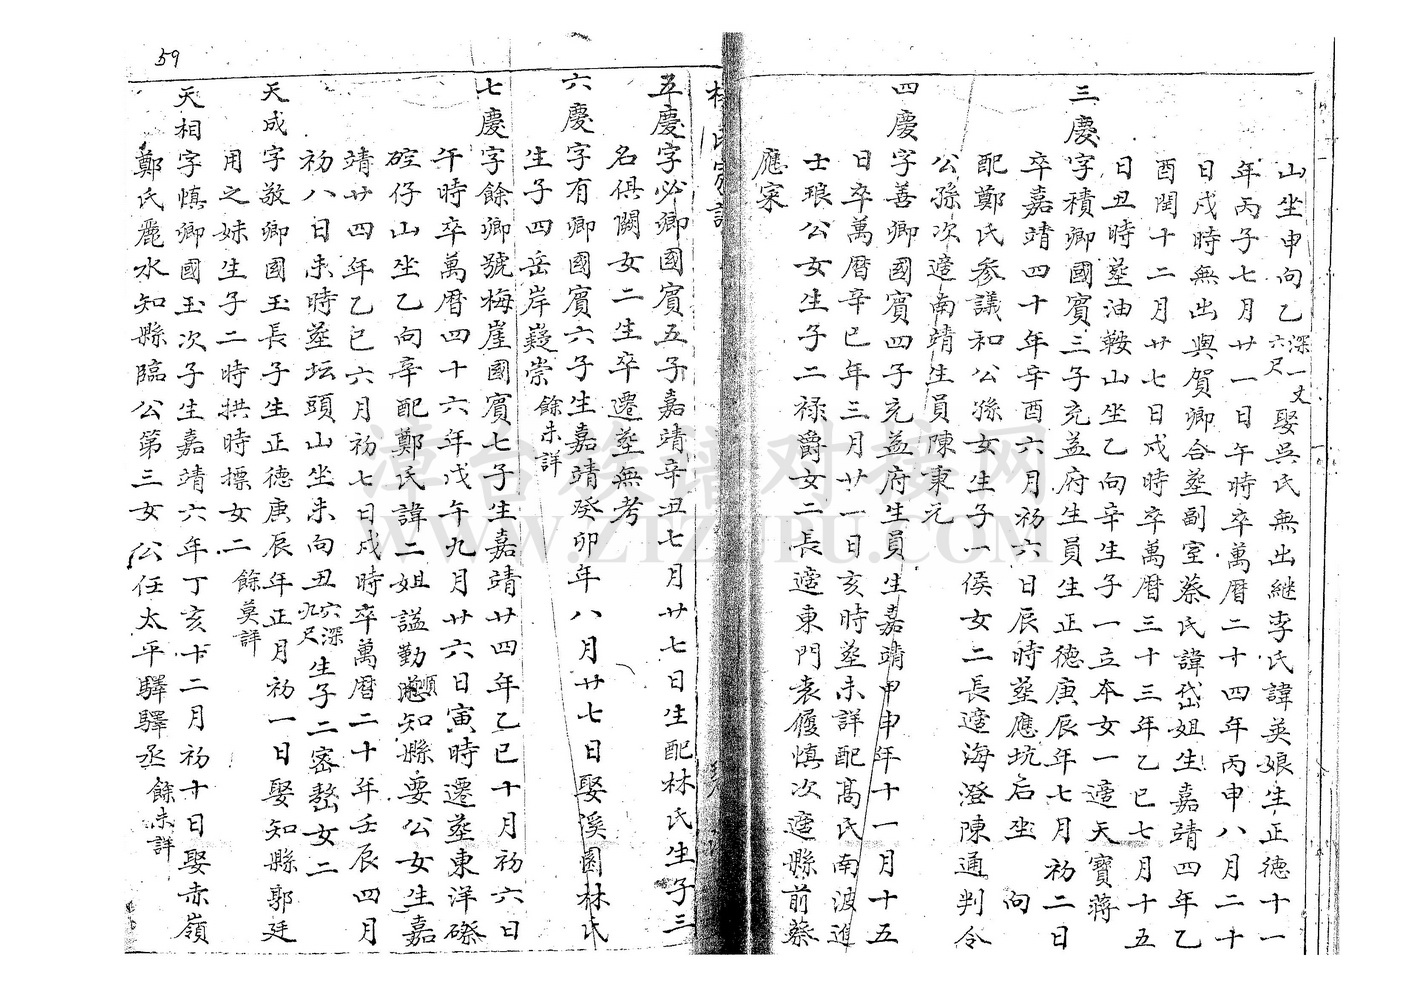 山坐申向乙深一丈六尺娶吳氏無出繼李氏諱英娘生正德十一
年丙子七月廿一日午時卒萬曆二十四年丙申八月二十
日戌時無出與賀卿合塟副室蔡氏諱岱姐生嘉靖四年乙
酉閏十二月廿七日戌時卒萬曆三十三年乙巳七月十五
日丑時塟油鞍山坐乙向辛生子一立本女一適天寶蔣
三慶字積卿國賓三子充益府生員生正德庚辰年七月初二日
卒嘉靖四十年辛酉六月初六日辰時塟應坑后坐 向
配鄭氏參議和公孫女生子一侯女二長適海澄陳通判令
公孫次適南靖生員陳東元
四慶字善卿國賓四子充益府生員生嘉靖甲申年十一月十五
日卒萬曆辛巳年三月廿一日亥時塟未詳配髙氏南波進
士琅公女生子二祿爵女二長適東門袁履慎次適縣前蔡
應寀
林氏家譜
五慶字必卿國賓五子嘉靖辛丑七月廿七日生配林氏生子三
名俱闕女二生卒遷塟無考
六慶字有卿國賓六子生嘉靖癸卯年八月廿七日娶溪園林氏
生子四岳岸嶷崇餘未詳
七慶字餘卿號梅崖國賓七子生嘉靖廿四年乙巳十月初六日
午時卒萬曆四十六年戊午九月廿六日寅時遷塟東洋磜
硿仔山坐乙向辛配鄭氏諱二姐謚勤慈順知縣要公女生嘉
靖廿四年乙巳六月初七日戌時卒萬曆二十年壬辰四月
初八日未時塟坛頭山坐未向丑穴深九尺生子二密嶅女二
天成字敬卿國玉長子生正德庚辰年正月初一日娶知縣郭廷
用之妹生子二時拱時標女二餘莫詳
天相字慎卿國玉次子生嘉靖六年丁亥十二月初十日娶赤嶺
鄭氏麗水知縣臨公第三女公任太平驛驛丞餘未詳
59
漳台族譜对接网
WWW.ZTZUPU.COM